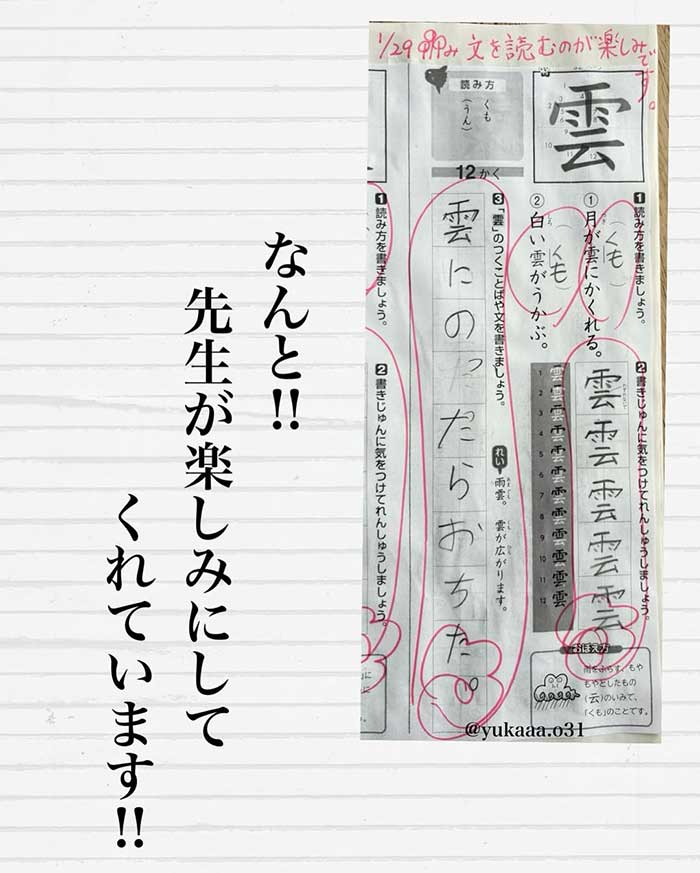 なんと!!
先生が楽しみにして
くれています!!
1/29 文を読むのが楽しみです。
雲
読み方
くも
(うん)
12かく
1 読み方を書きましょう。
① 月が雲にかくれる。
つき
(くも)
② 白い雲がうかぶ。
しろ
(くも)
2 書きじゅんに気をつけてれんしゅうしましょう。
雲雲雲雲雲
1 2 3 4 5 6 7 8 9 10 11 12
おぼえ方
雨をふらす、もや
もやとしたもの
(云)のいみで、
「くも」のことです。
3 「雲」のつくことばや文を書きましょう。
れい 雨雲。 雲が広がります。
あまぐも くも ひろ
雲にのっだらおちた。
1 読み方を書きましょう。
2 書きじゅんに気をつけてれんしゅうしましょう。
@yukaaa.o31